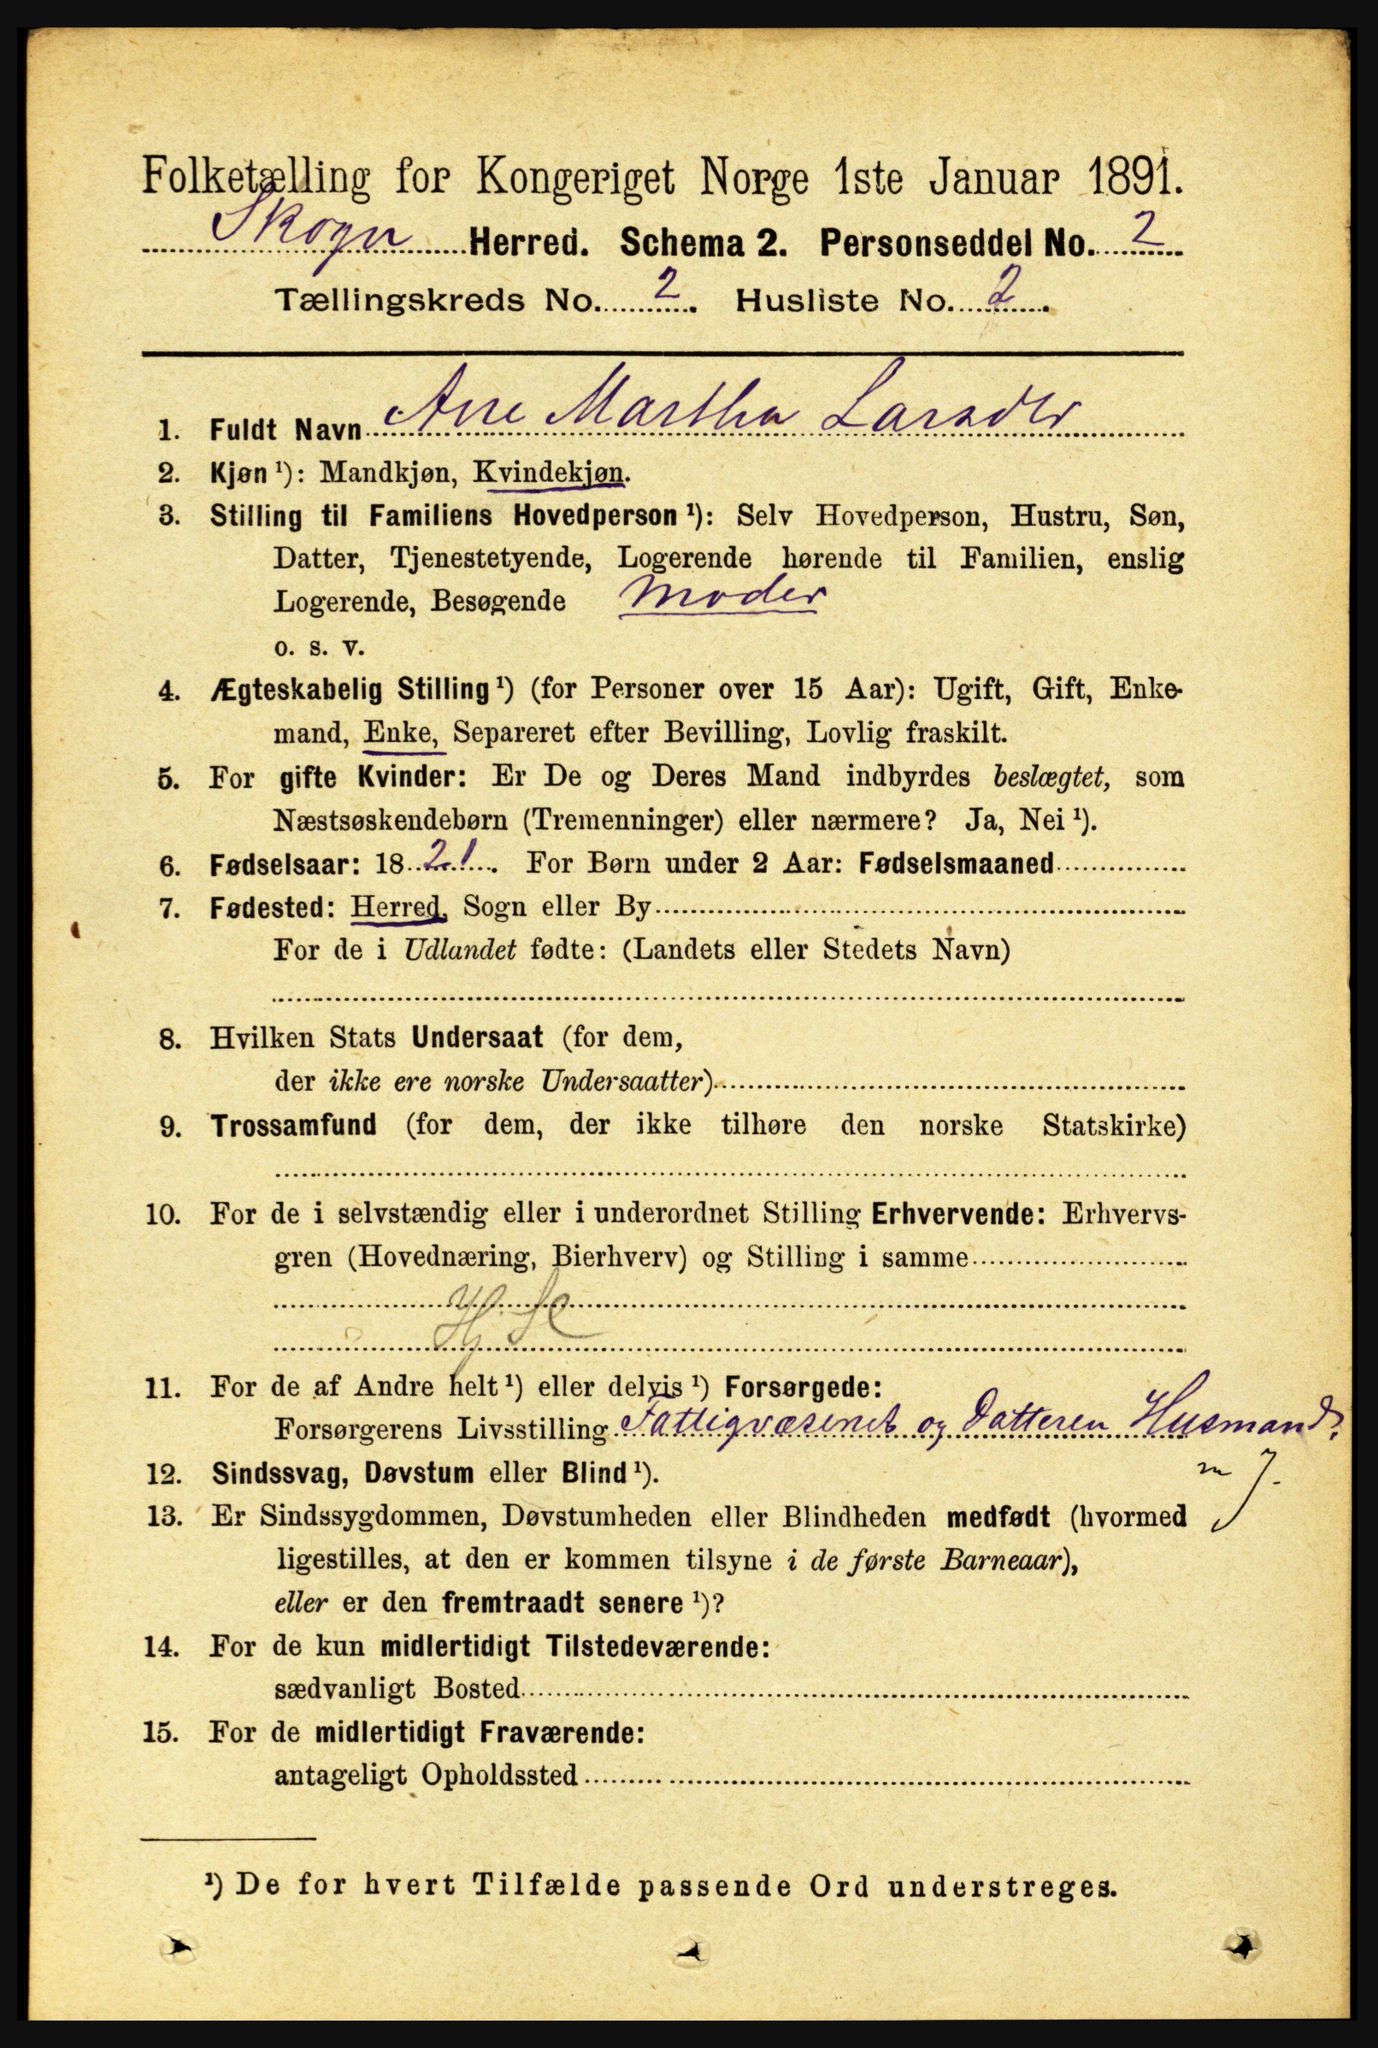 Folketælling for Kongeriget Norge 1ste Januar 1891.
Skogn Herred. Schema 2. Personseddel No. 2
Tællingskreds No. 2. Husliste No. 2.
1. Fuldt Navn Ane Martha Larsdtr
2. Kjøn ¹): Mandkjøn, Kvindekjøn.
3. Stilling til Familiens Hovedperson ¹): Selv Hovedperson, Hustru, Søn,
Datter, Tjenestetyende, Logerende hørende til Familien, enslig
Logerende, Besøgende Moder
o. s. v.
4. Ægteskabelig Stilling ¹) (for Personer over 15 Aar): Ugift, Gift, Enke-
mand, Enke, Separeret efter Bevilling, Lovlig fraskilt.
5. For gifte Kvinder: Er De og Deres Mand indbyrdes beslægtet, som
Næstsøskendebørn (Tremenninger) eller nærmere? Ja, Nei ¹).
6. Fødselsaar: 1821. For Børn under 2 Aar: Fødselsmaaned
7. Fødested: Herred, Sogn eller By
For de i Udlandet fødte: (Landets eller Stedets Navn)
8. Hvilken Stats Undersaat (for dem,
der ikke ere norske Undersaatter)
9. Trossamfund (for dem, der ikke tilhøre den norske Statskirke)
10. For de i selvstændig eller i underordnet Stilling Erhvervende: Erhvervs-
gren (Hovednæring, Bierhverv) og Stilling i samme
11. For de af Andre helt ¹) eller delvis ¹) Forsørgede:
Forsørgerens Livsstilling Fattigvæsenet og Datteren Husmands.
m J.
12. Sindssvag, Døvstum eller Blind ¹).
13. Er Sindssygdommen, Døvstumheden eller Blindheden medfødt (hvormed
ligestilles, at den er kommen tilsyne i de første Barneaar),
eller er den fremtraadt senere ¹)?
14. For de kun midlertidigt Tilstedeværende:
sædvanligt Bosted
15. For de midlertidigt Fraværende:
antageligt Opholdssted
¹) De for hvert Tilfælde passende Ord understreges.